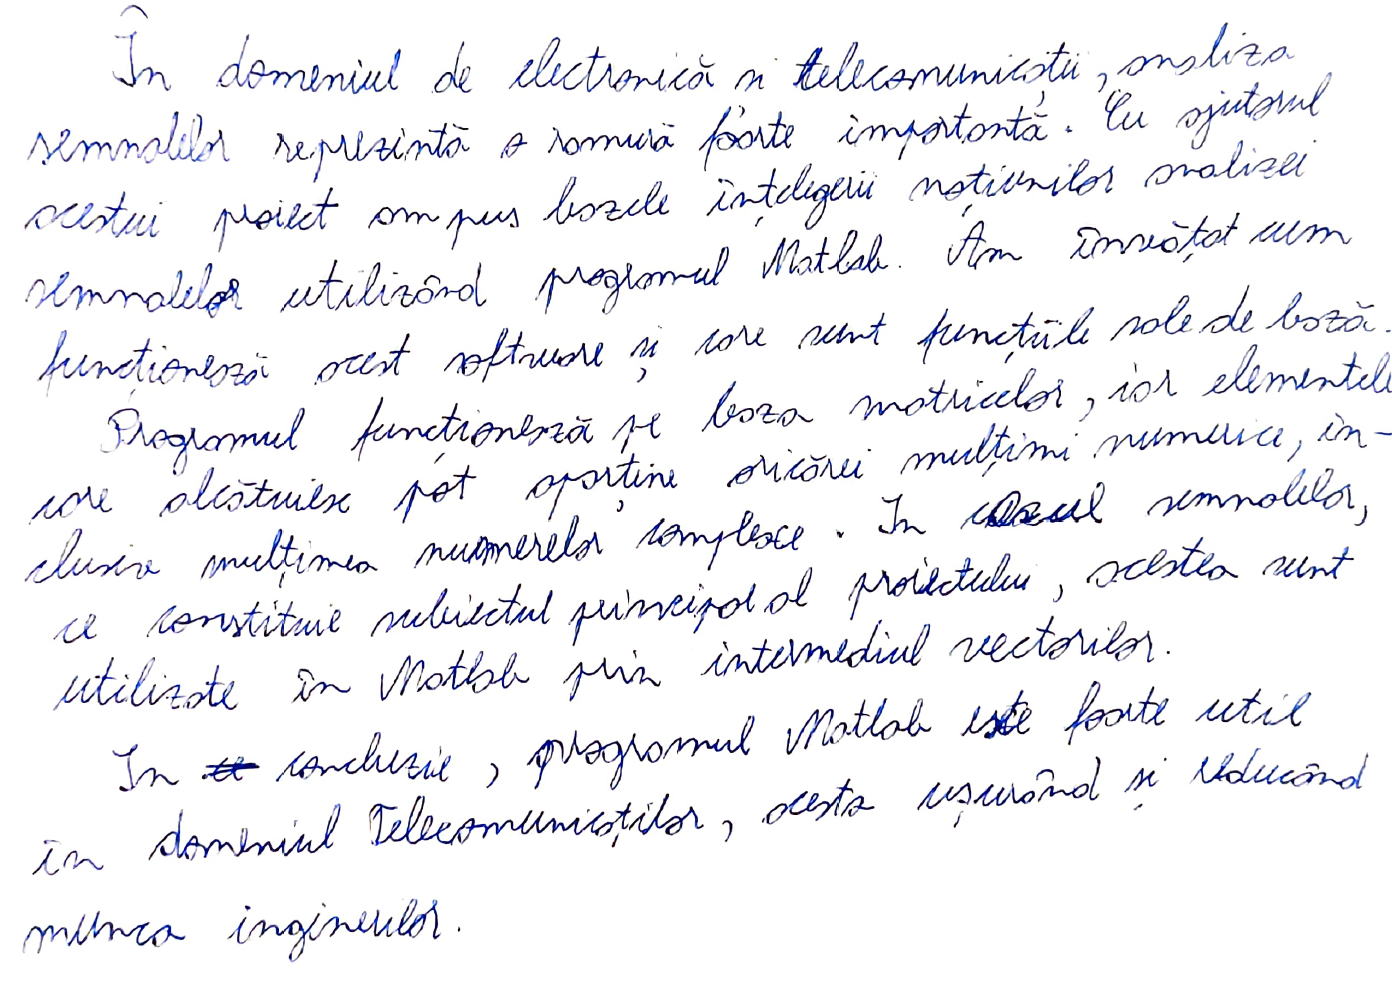 În domeniul de electronică si telecomunicații, analiza
semnalelor reprezintă o ramură foarte importantă. Cu ajutorul
acestui proiect am pus bazele înțelegerii noțiunilor analizei
semnalelor utilizând programul Matlab. Am învățat cum
funcționează acest software și care sunt funcțiile sale de bază.
Programul funcționează pe baza matricelor, iar elementele
care alcătuiesc pot aparține oricărei mulțimi numerice, in-
clusiv mulțimea numerelor complexe. In cazul semnalelor,
ce constituie subiectul principal al proiectului, acestea sunt
utilizate în Matlab prin intermediul vectorilor.
In concluzie, programul Matlab este foarte util
în domeniul Telecomunicațiilor, acesta ușurând și reducând
munca inginerilor.